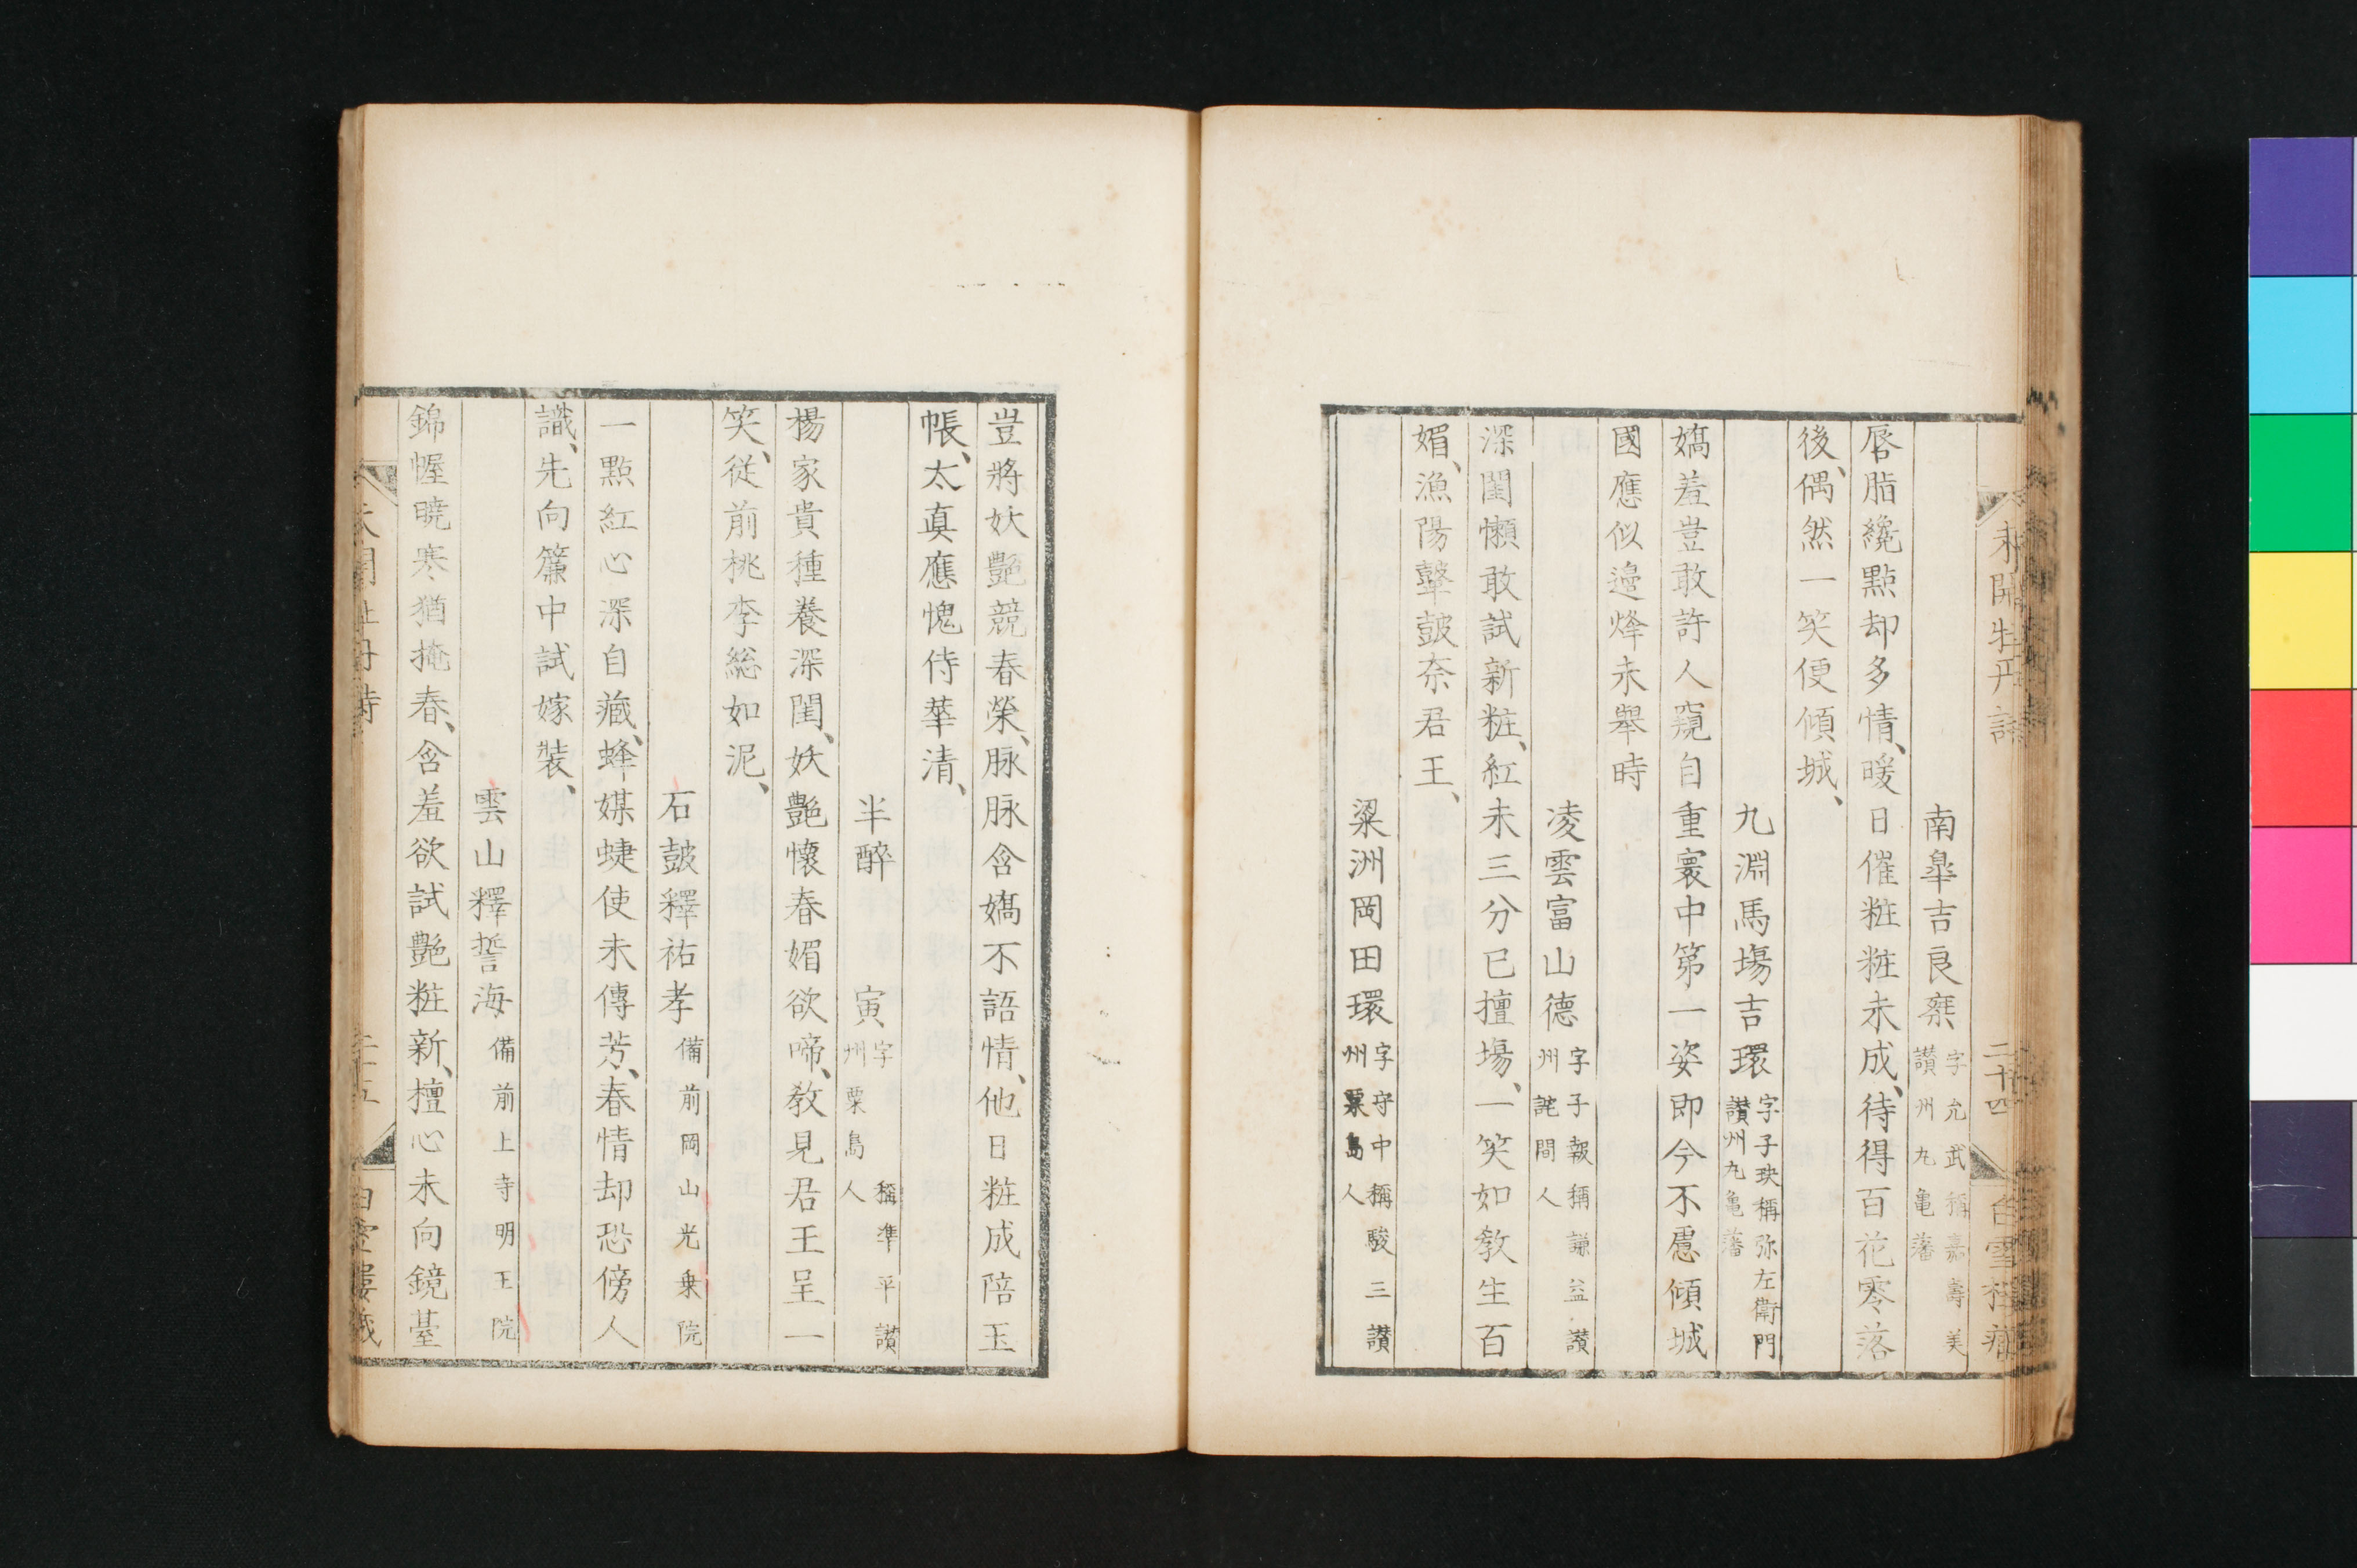 未開牡丹詩 二十四
南皐吉良桒 字允武稱嘉壽美讃州丸亀藩
唇脂纔點却多情、暖日催粧粧未成、待得百花零落
後、偶然一笑便傾城、
九淵馬場吉環 字子玦稱弥左衛門讃州丸亀藩
嬌羞豈敢許人窺自重寰中第一姿即今不慮傾城
國應似邊烽未舉時
凌雲富山德 字子報稱謙益讃州詫間人
深閨懶敢試新粧、紅未三分已擅場、一笑如教生百
媚、漁陽鼙皷奈君王、
粱洲岡田環 字守中稱駿三讃州粟島人
豈將妖艶競春榮、脉脉含嬌不語情、他日粧成陪玉
帳、太真應愧侍華清、
半醉 寅 字 稱準平讃州粟島人
楊家貴種養深閨、妖艶懷春媚欲啼、教見君王呈一
笑、從前桃李総如泥、
石皷釋祐孝 備前岡山光乗院
一點紅心深自藏、蜂媒蜨使未傳芳、春情却恐傍人
識、先向簾中試嫁裝、
雲山釋誓海 備前上寺明王院
錦幄曉寒猶掩春、含羞欲試艶粧新、檀心未向鏡臺